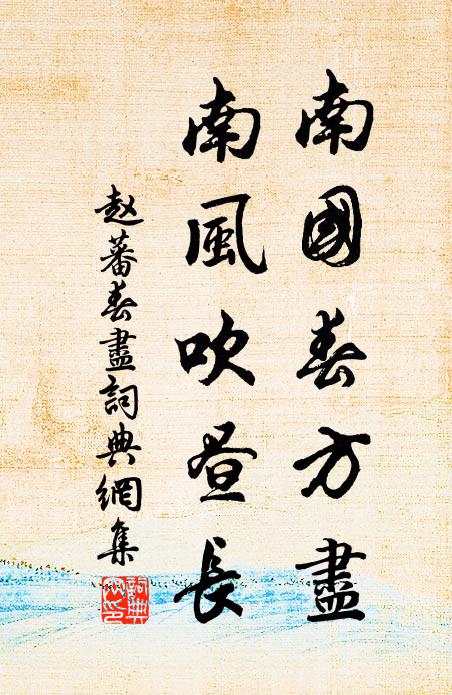 南國春方盡
南風吹昼長
赵蕃春盡詞典網集